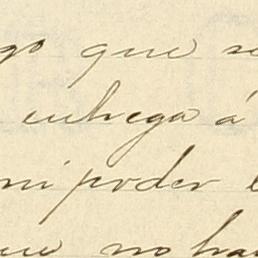 go que se
entrega á
mi poder
que no ha